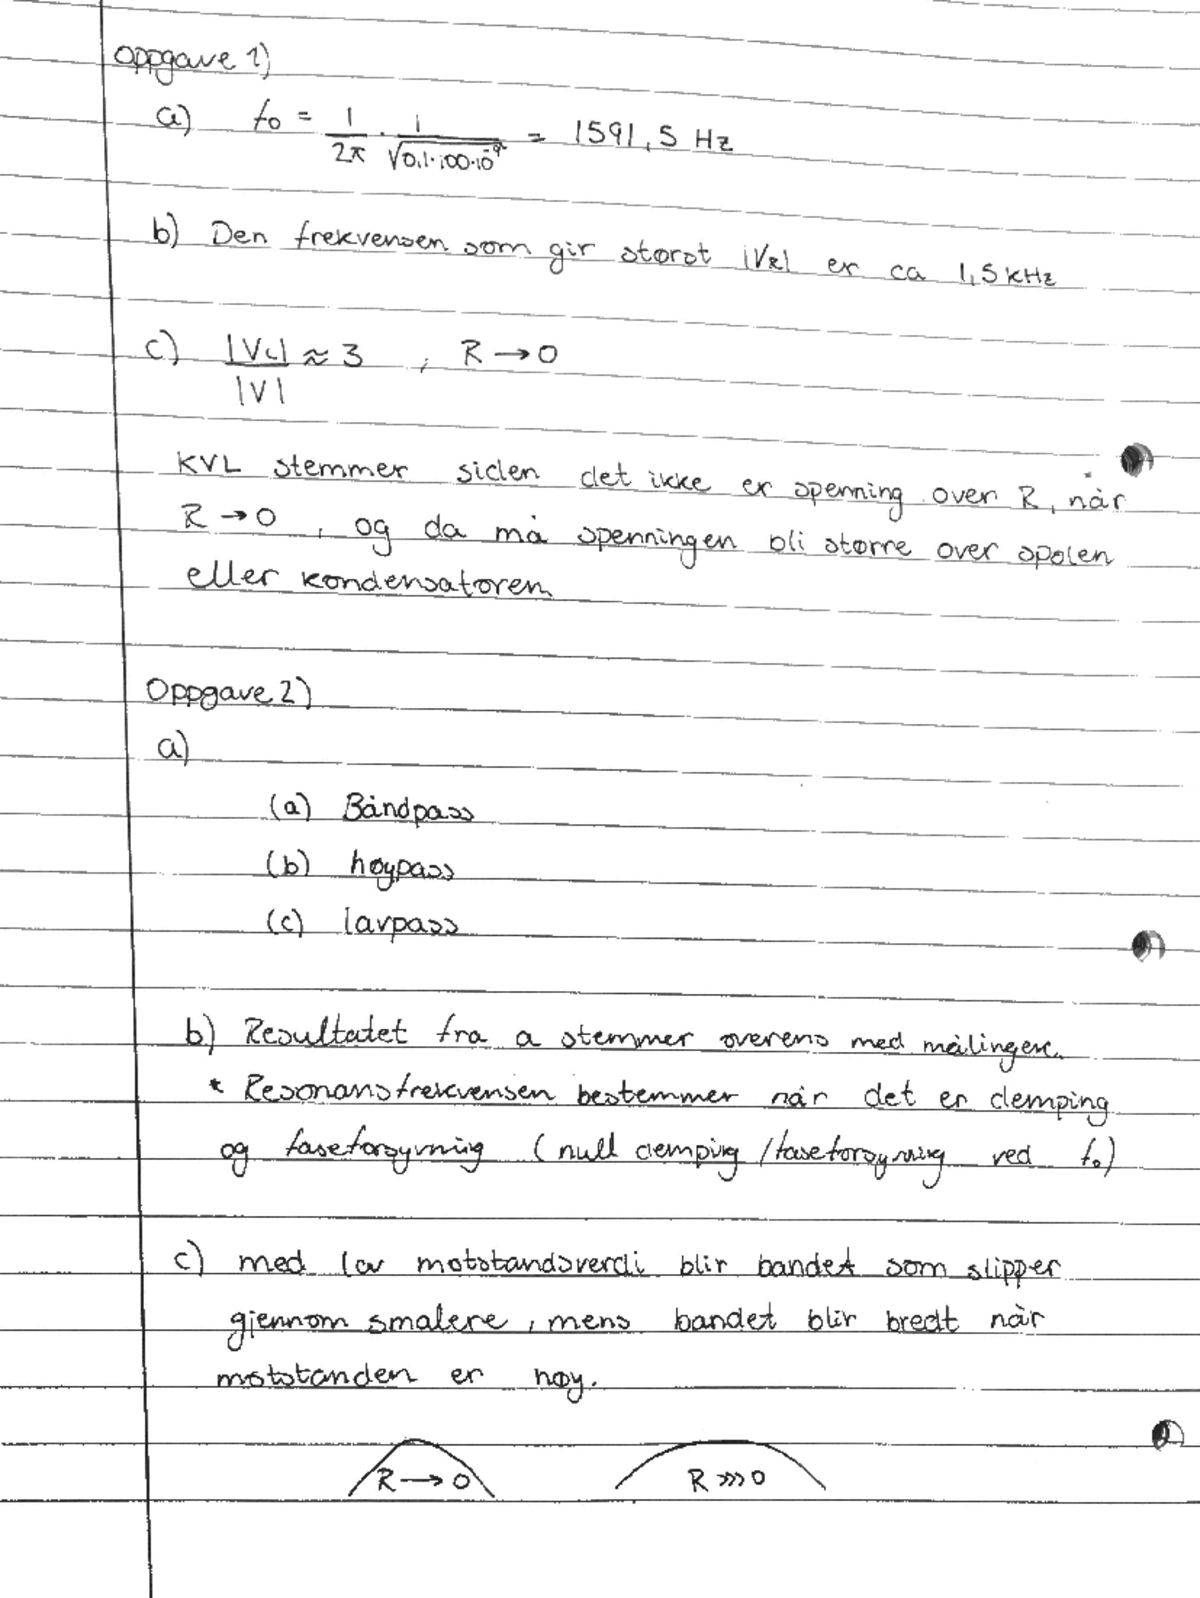 Oppgave 1)
a) f0 = 1/2π · 1/√0,1·100·10^-9 = 1591,5 Hz
b) Den frekvensen som gir størst |VR| er ca 1,5 kHz
c) |VL|/|V| ≈ 3 , R → 0
KVL stemmer siden det ikke er spenning over R, når
R → 0 , og da må spenningen bli større over spolen
eller kondensatoren
Oppgave 2)
a)
(a) Båndpass
(b) høypass
(c) lavpass
b) Resultatet fra a stemmer overens med målingen.
* Resonansfrekvensen bestemmer når det er demping
og faseforsyvning (null demping / faseforsyvning ved f0)
c) med lav motstandsverdi blir bandet som slipper
gjennom smalere, mens bandet blir bredt når
motstanden er høy.
R → 0 R >>> 0